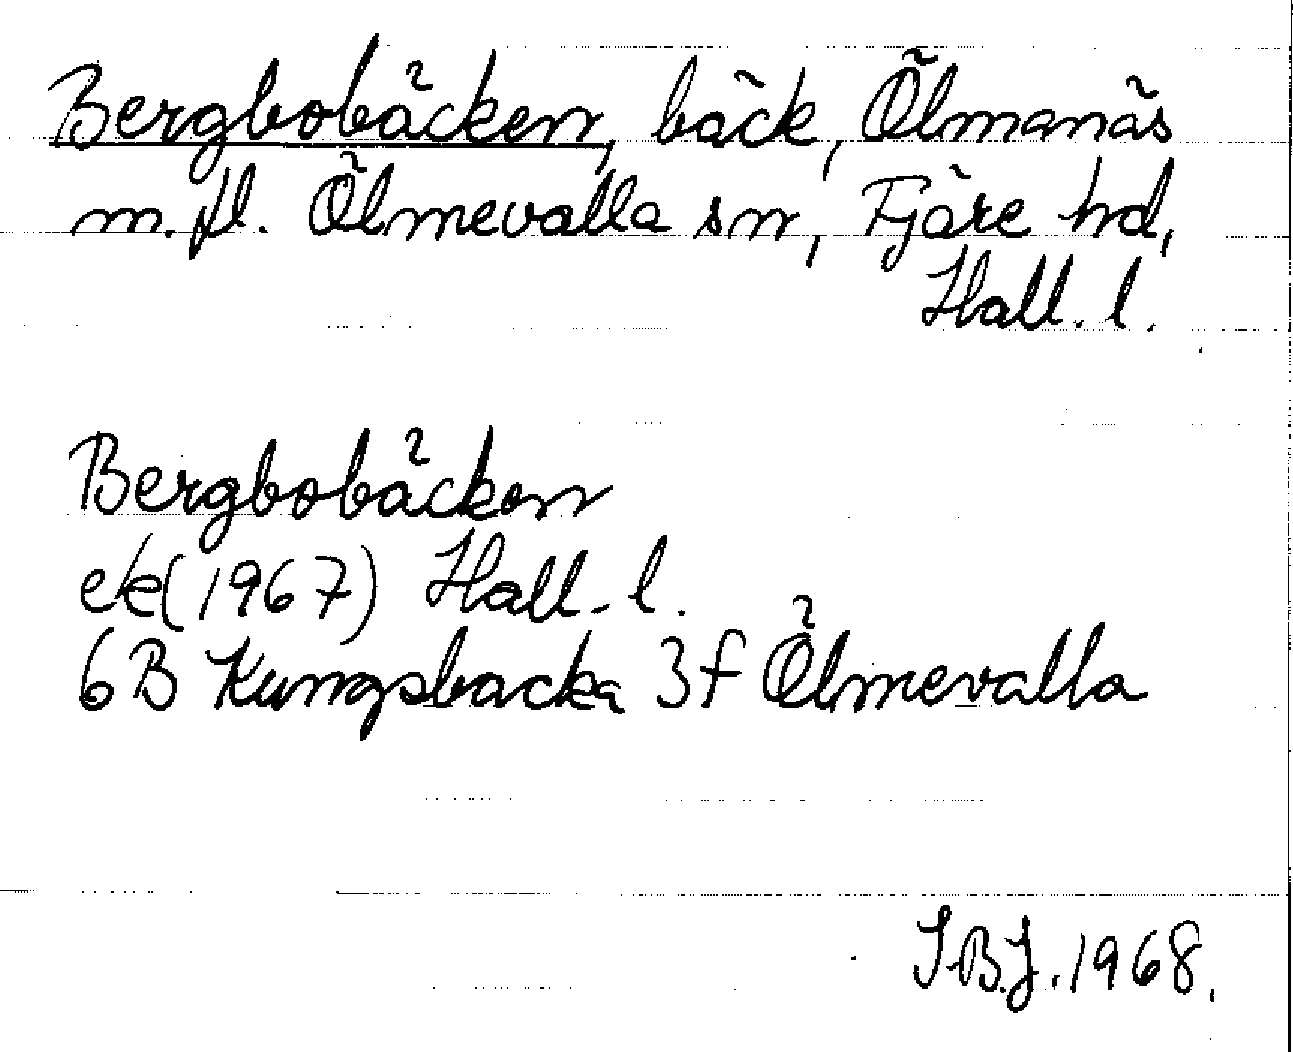 Bergbobäcken, bäck, Ölmanäs
m.fl. Ölmevalla sn, Fjäre hd,
Hall. l.
Bergbobäcken
ek(1967) Hall. l.
6B Kungsbacka 3f Ölmevalla
I.B.J. 1968.